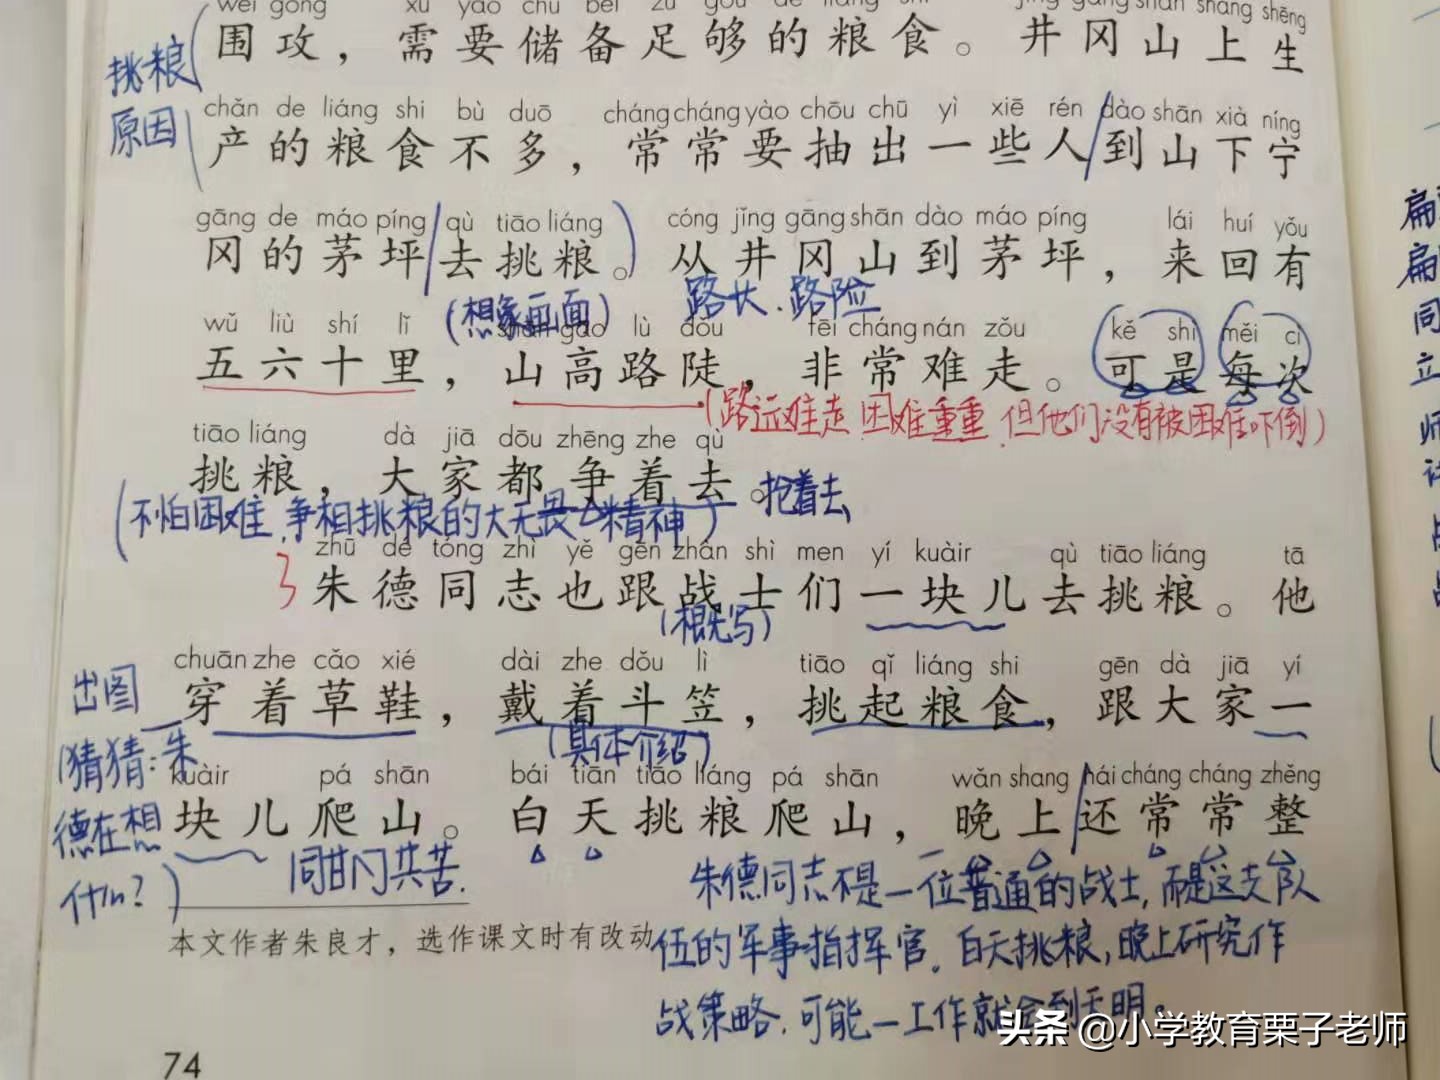 wéi gōng xū yào chǔ bèi zú gòu de liáng shi jǐng gāng shān shang shēng
围攻，需要储备足够的粮食。井冈山上生
挑粮
原因
chǎn de liáng shi bù duō cháng cháng yào chōu chū yì xiē rén dào shān xià níng
产的粮食不多，常常要抽出一些人到山下宁
gāng de máo píng qù tiāo liáng cóng jǐng gāng shān dào máo píng lái huí yǒu
冈的茅坪去挑粮。从井冈山到茅坪，来回有
(想象画面) 路长.路险
wǔ liù shí lǐ shān gāo lù dǒu fēi cháng nán zǒu kě shì měi cì
五六十里，山高路陡，非常难走。可是每次
(路远难走 困难重重,但他们没有被困难吓倒)
tiāo liáng dà jiā dōu zhēng zhe qù
挑粮，大家都争着去。抢着去
(不怕困难,争相挑粮的大无畏精神)
zhū dé tóng zhì yě gēn zhàn shì men yí kuàir qù tiāo liáng tā
3 朱德同志也跟战士们一块儿去挑粮。他
(概写)
chuān zhe cǎo xié dài zhe dǒu lì tiāo qǐ liáng shi gēn dà jiā yí
出图 穿着草鞋，戴着斗笠，挑起粮食，跟大家一
(具体介绍)
(猜猜:朱
德在想
什么?)
kuàir pá shān bái tiān tiāo liáng pá shān wǎn shang hái cháng cháng zhěng
块儿爬山。白天挑粮爬山，晚上还常常整
同甘共苦.
朱德同志不是一位普通的战士,而是这支队
伍的军事指挥官。白天挑粮,晚上研究作
战策略,可能一工作就会到天明。
本文作者朱良才，选作课文时有改动
74
扁
扁
同
立
师
头条 @小学教育栗子老师